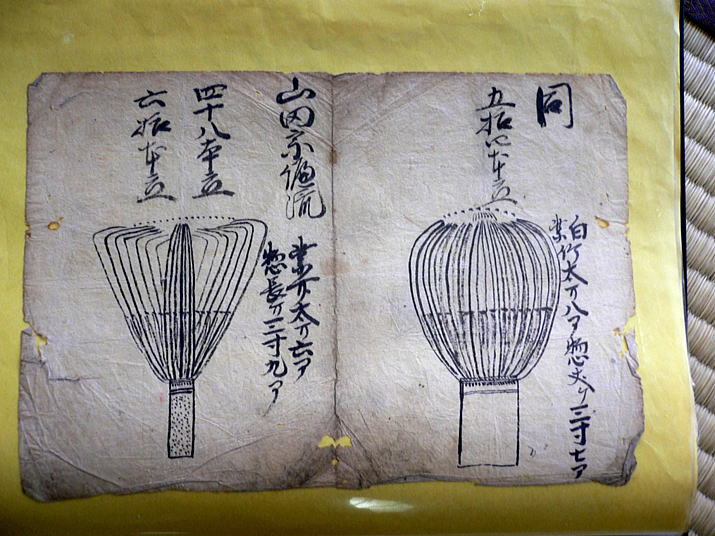 同
五拾四本立
白竹
太サ八分
惣丈ケ三寸七分
山田宗偏流
四十八本立
六拾本立
太サ六分
惣長サ三寸九分